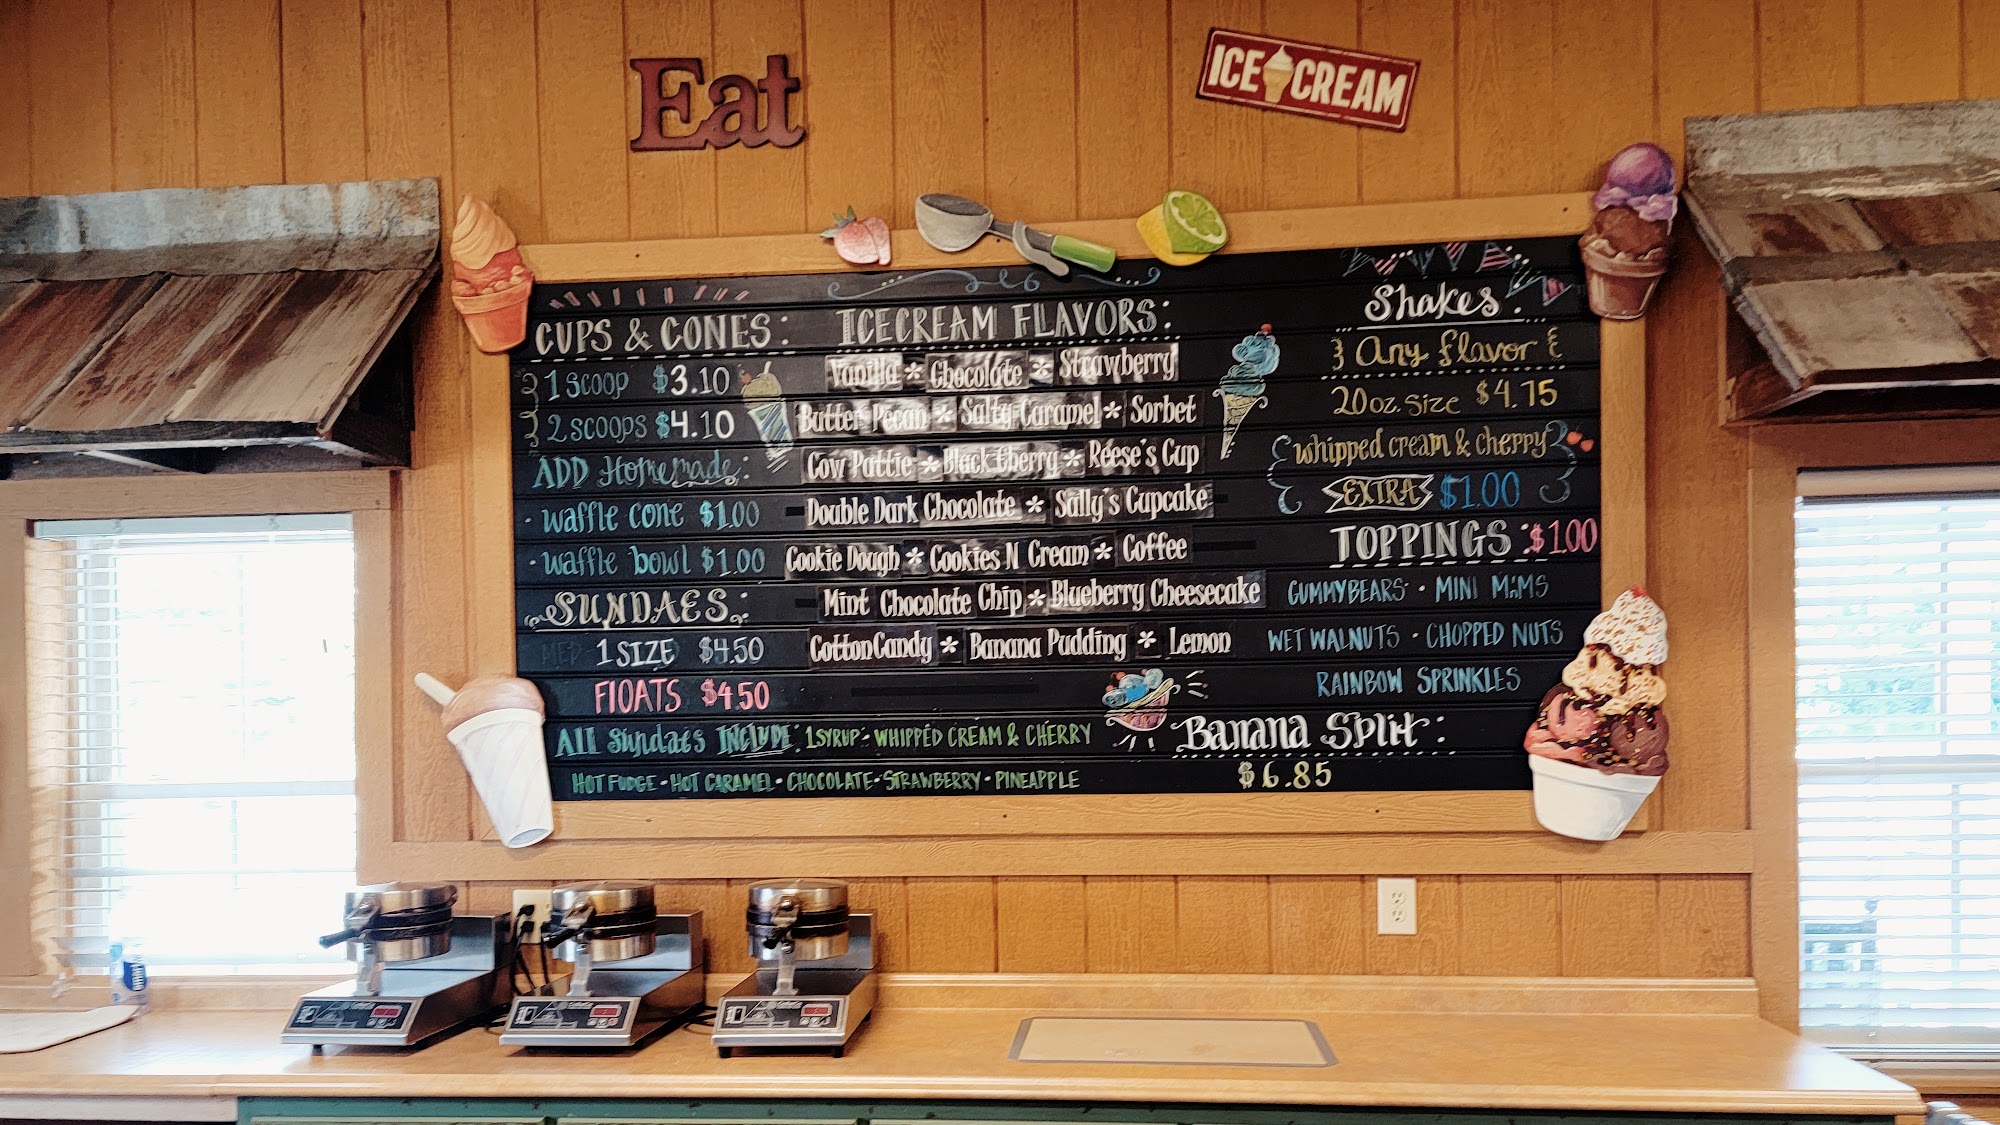 Eat
ICE CREAM
CUPS & CONES:
1 Scoop $3.10
2 scoops $4.10
ADD Homemade:
· waffle cone $1.00
· waffle bowl $1.00
SUNDAES:
MED 1 SIZE $4.50
FlOATS $4.50
All Sundaes INCLUDE: 1 SYRUP · WHIPPED CREAM & CHERRY
HOT FUDGE · HOT CARAMEL · CHOCOLATE · STRAWBERRY · PINEAPPLE
ICECREAM FLAVORS:
Vanilla * Chocolate * Strawberry
Butter Pecan * Salty Caramel * Sorbet
Cow Pattie * Black Cherry * Reese's Cup
Double Dark Chocolate * Sally's Cupcake
Cookie Dough * Cookies N Cream * Coffee
Mint Chocolate Chip * Blueberry Cheesecake
CottonCandy * Banana Pudding * Lemon
Shakes:
Any flavor
20oz. Size $4.75
whipped cream & cherry
EXTRA $1.00
TOPPINGS: $1.00
GUMMYBEARS · MINI M&MS
WET WALNUTS · CHOPPED NUTS
RAINBOW SPRINKLES
Banana Split:
$6.85